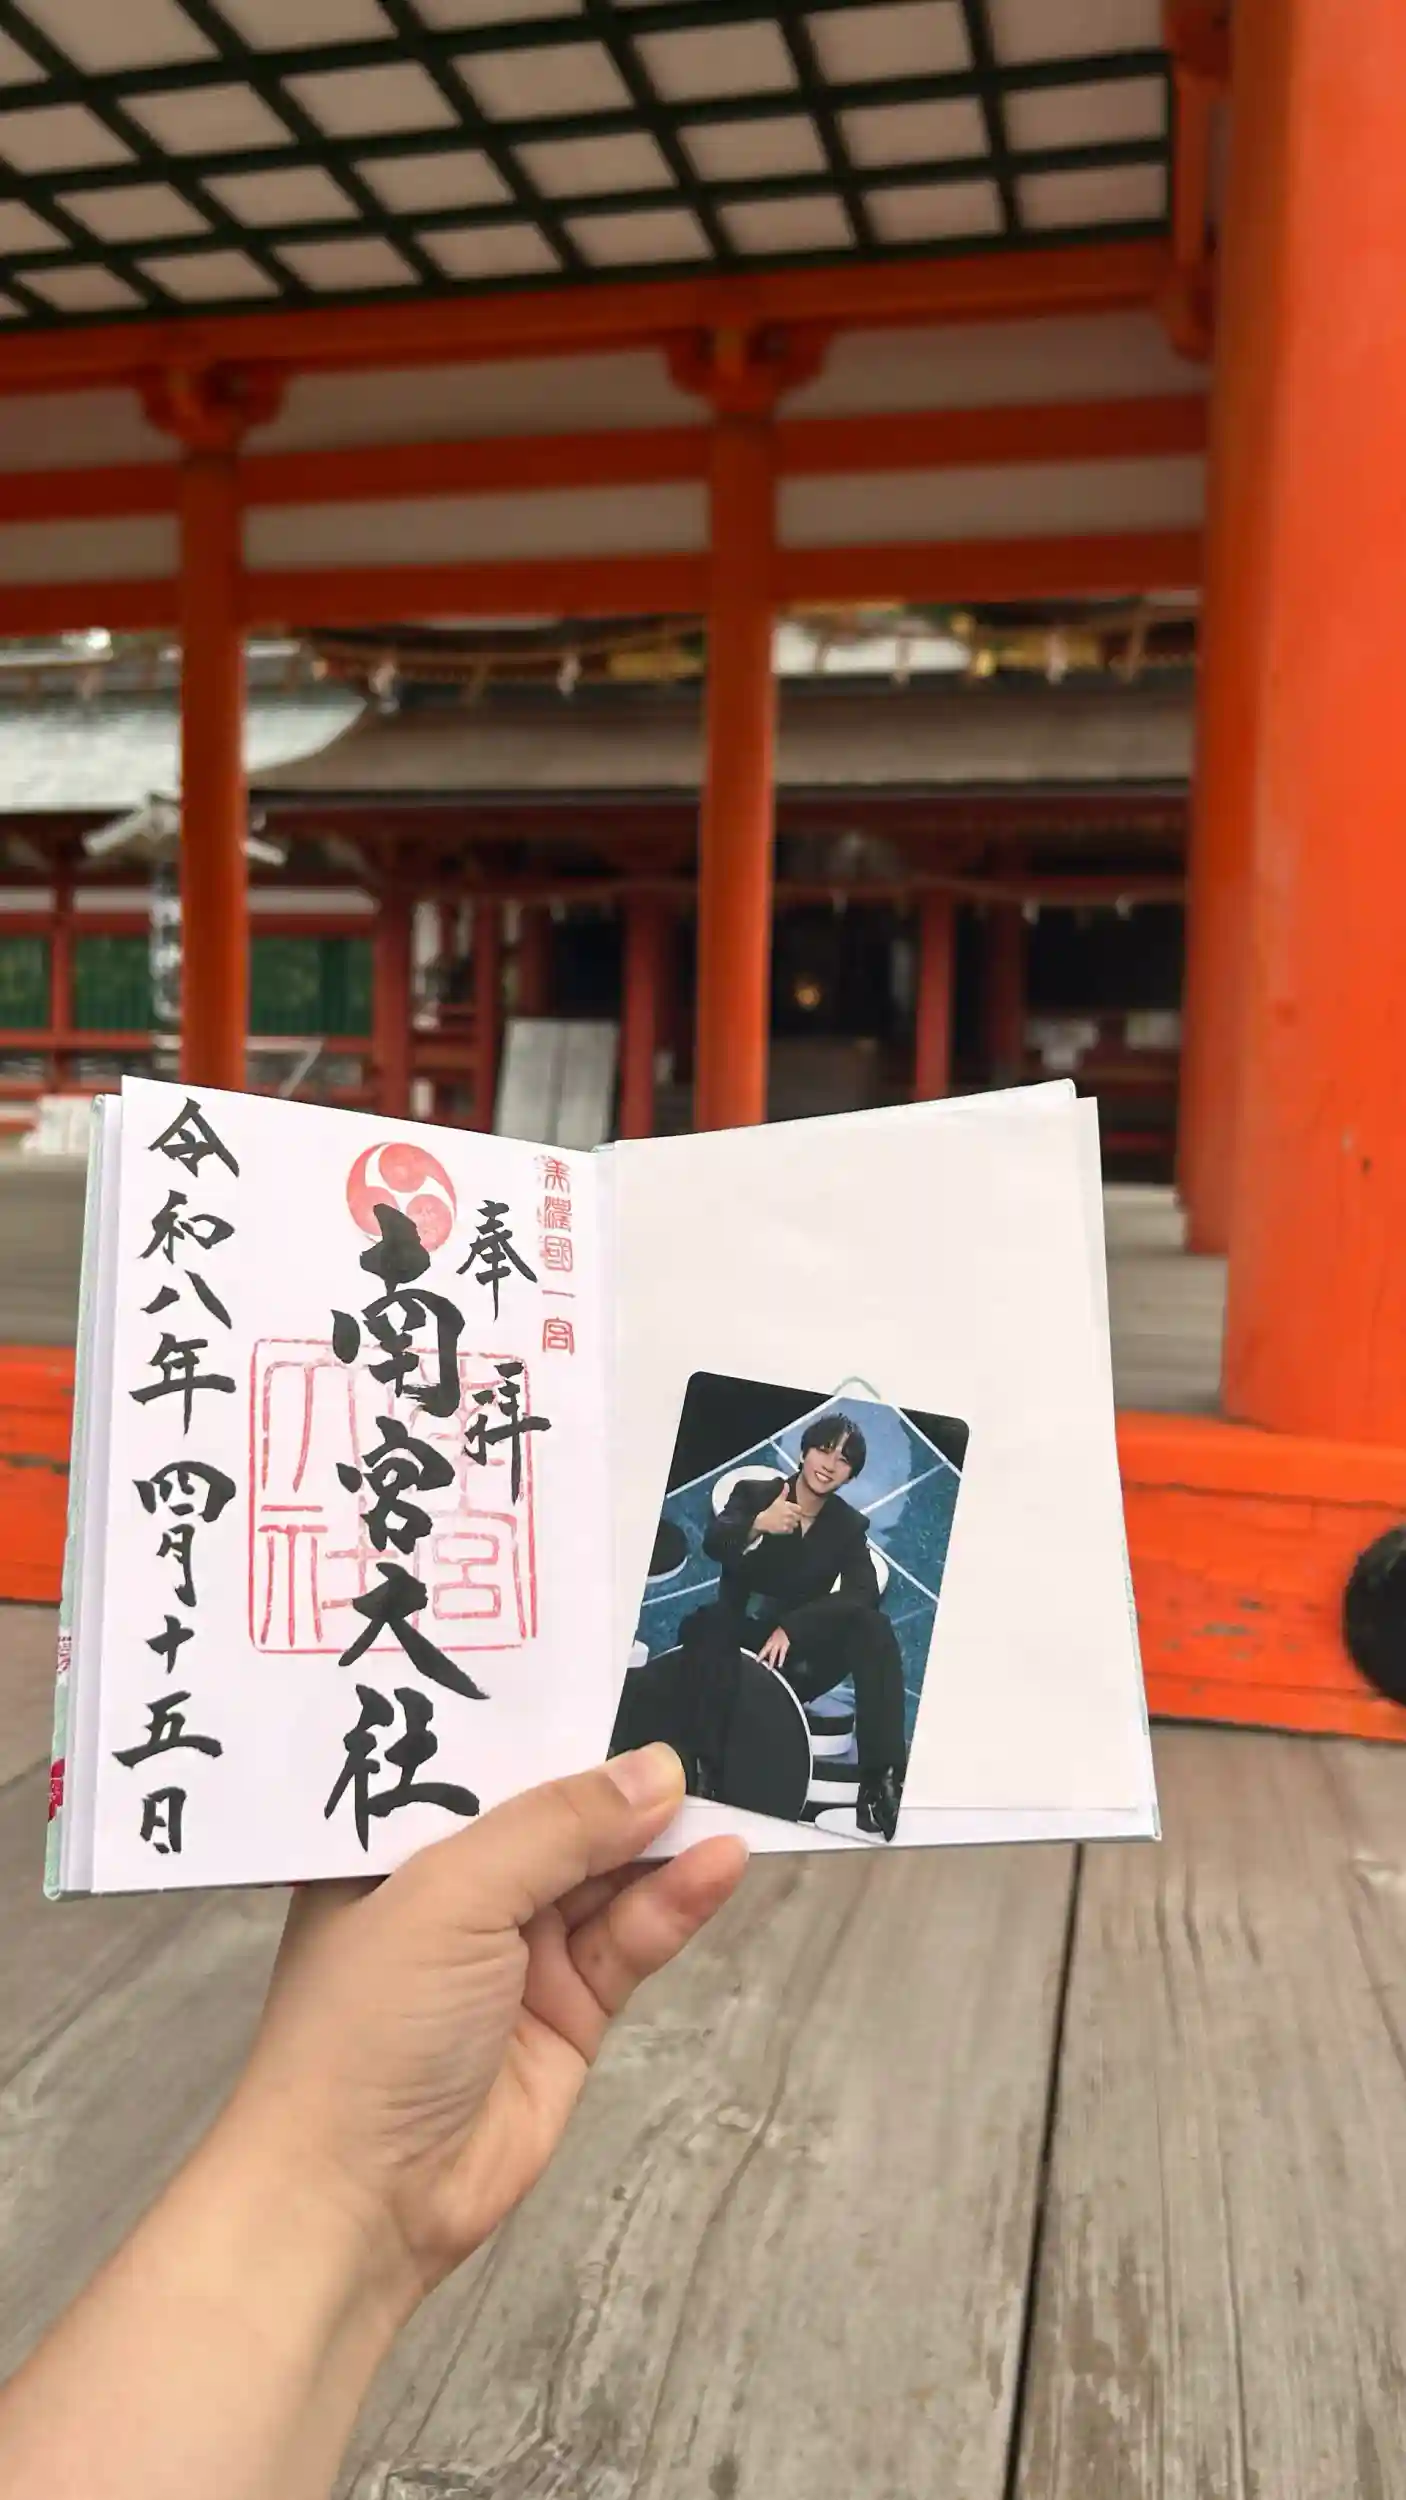 美濃國一宮
奉拝
南宮大社
南宮
大社
令和八年四月十五日